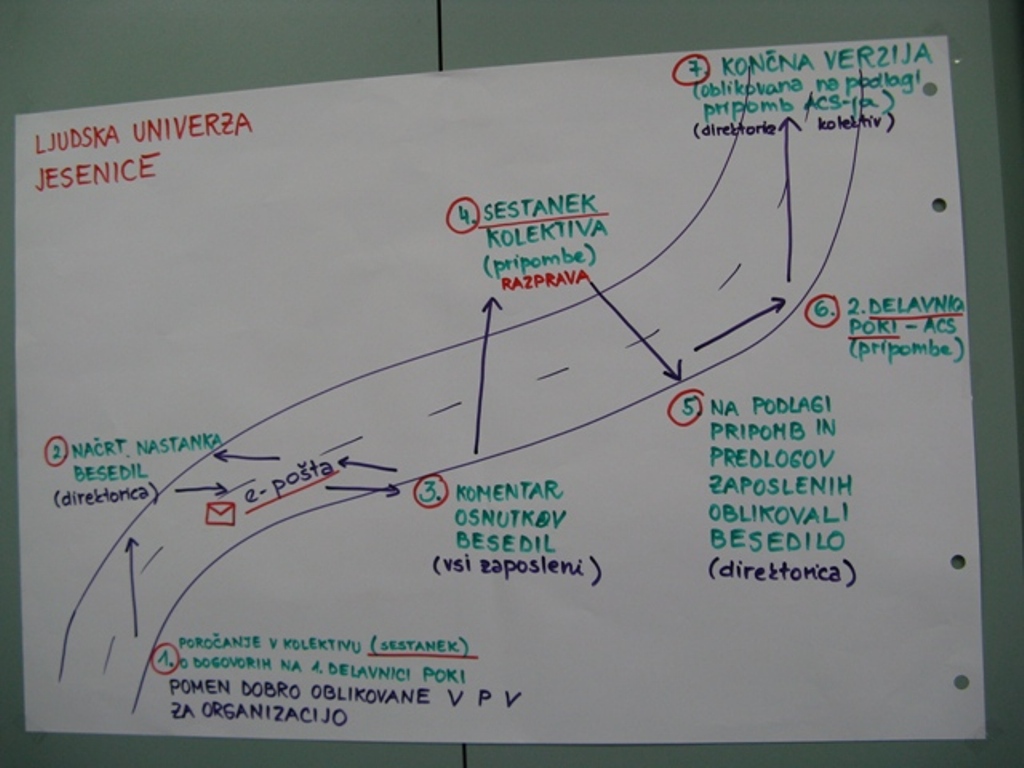 LJUDSKA UNIVERZA
JESENICE
7. KONČNA VERZIJA
(oblikovana na podlagi
pripomb ACS-ja)
(direktorica kolektiv)
4. SESTANEK
KOLEKTIVA
(pripombe)
RAZPRAVA
6. 2. DELAVNICA
POKI - ACS
(pripombe)
2. NAČRT NASTANKA
BESEDIL
(direktorica)
e-pošta
3. KOMENTAR
OSNUTKOV
BESEDIL
(vsi zaposleni)
5. NA PODLAGI
PRIPOMB IN
PREDLOGOV
ZAPOSLENIH
OBLIKOVALI
BESEDILO
(direktorica)
1. POROČANJE V KOLEKTIVU (SESTANEK)
O DOGOVORIH NA 1. DELAVNICI POKI
POMEN DOBRO OBLIKOVANE V P V
ZA ORGANIZACIJO